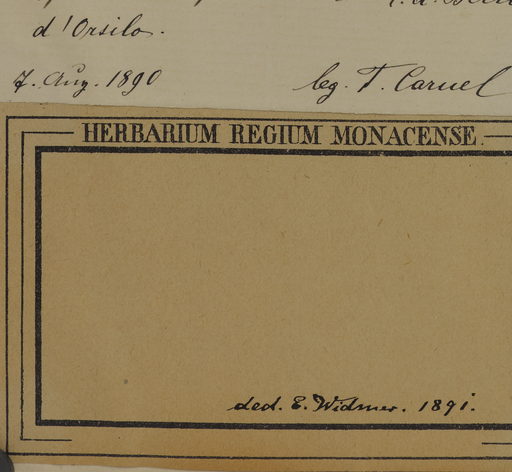 d'Orsilo.
7. Aug. 1890 leg. T. Caruel
HERBARIUM REGIUM MONACENSE.
ded. E. Widmer. 1891.